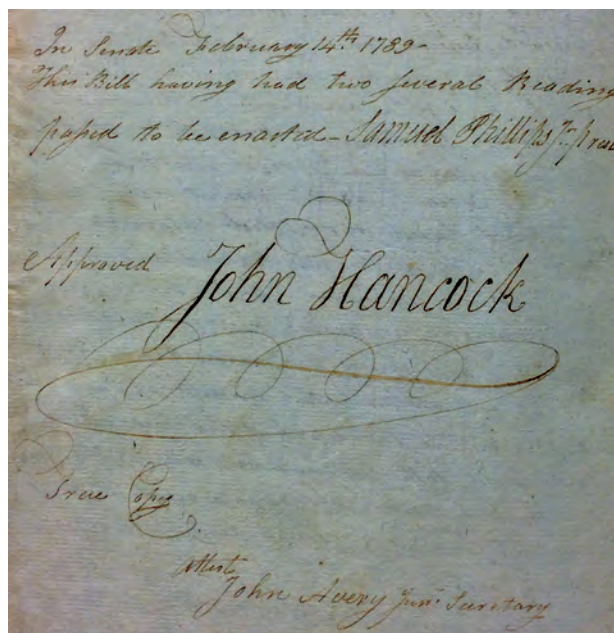 In Senate February 14th 1789-
This Bill having had two several Reading
passed to be enacted - Samuel Phillips Jr. presi
Approved John Hancock
True Copy
Attest
John Avery Junr. Secretary